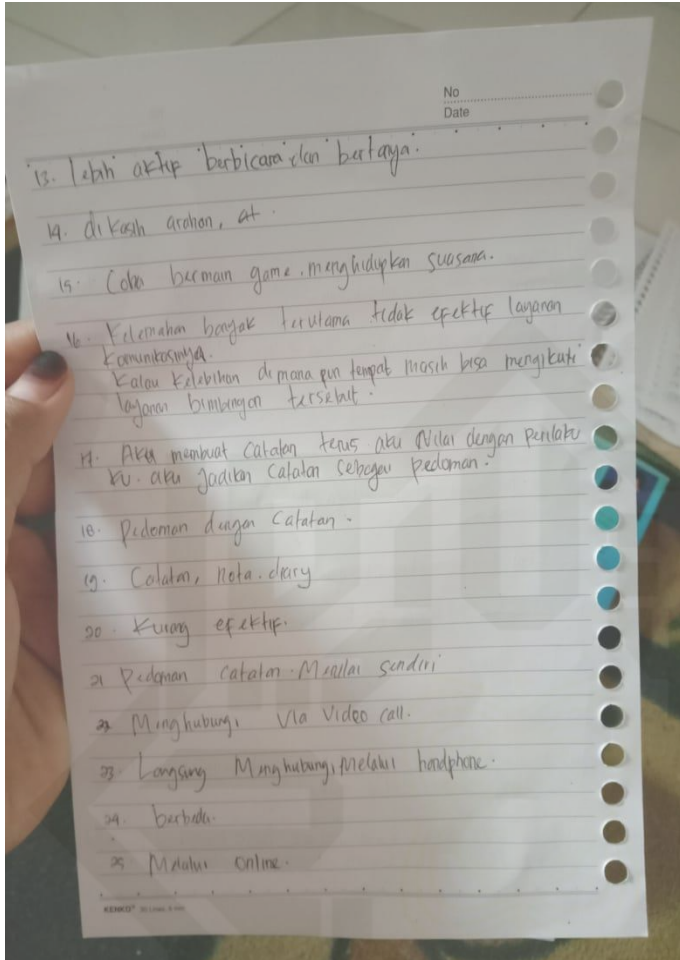 No
Date
13. lebih aktif berbicara dan bertanya.
14. di kasih arahan, at.
15. Coba bermain game. menghidupkan suasana.
16. Kelemahan banyak terutama tidak efektif layanan
komunikasinya.
Kalau Kelebihan dimana pun tempat masih bisa mengikuti
layanan bimbingan tersebut.
17. Aku membuat Catatan terus aku Nilai dengan perilaku
ku. aku jadikan Catatan sebagai pedoman.
18. Pedoman dengan Catatan.
19. Catatan, nota. diary
20. Kurang efektif.
21 Pedoman catatan. Menilai sendiri
22 Menghubungi Via Video Call.
23. Langsung Menghubungi, Melalui handphone.
24. berbeda.
25 Melalui online.
KENKO